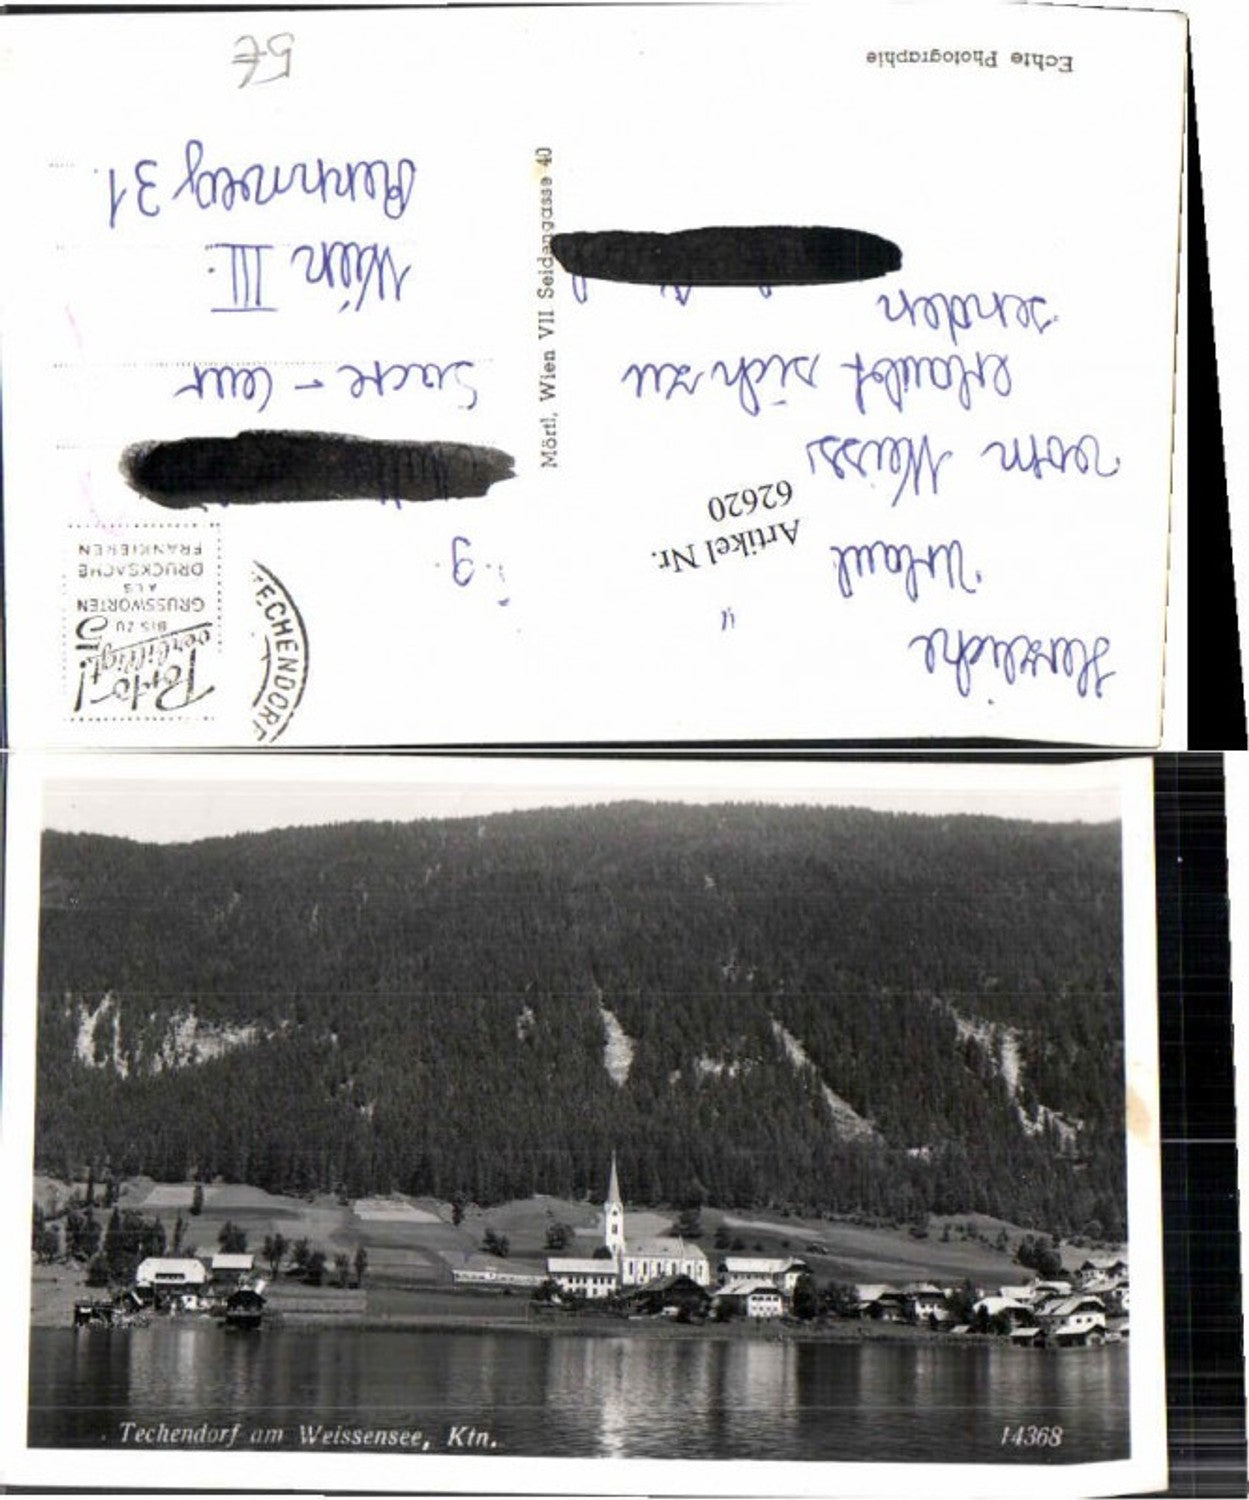 Echte Photographie
5€
Herzliche
Urlaub
vom Weiss
erlaubt sich zu
senden
Artikel Nr.
62620
Mörtl, Wien VII Seidengasse 40
TECHENDORF
Porto!
verbilligt!
BIS ZU 5
GRUSSWORTEN
ALS
DRUCKSACHE
FRANKIEREN
Sacre - Ceur
Wien III.
Rennweg 31.
Techendorf am Weissensee, Ktn.
14368